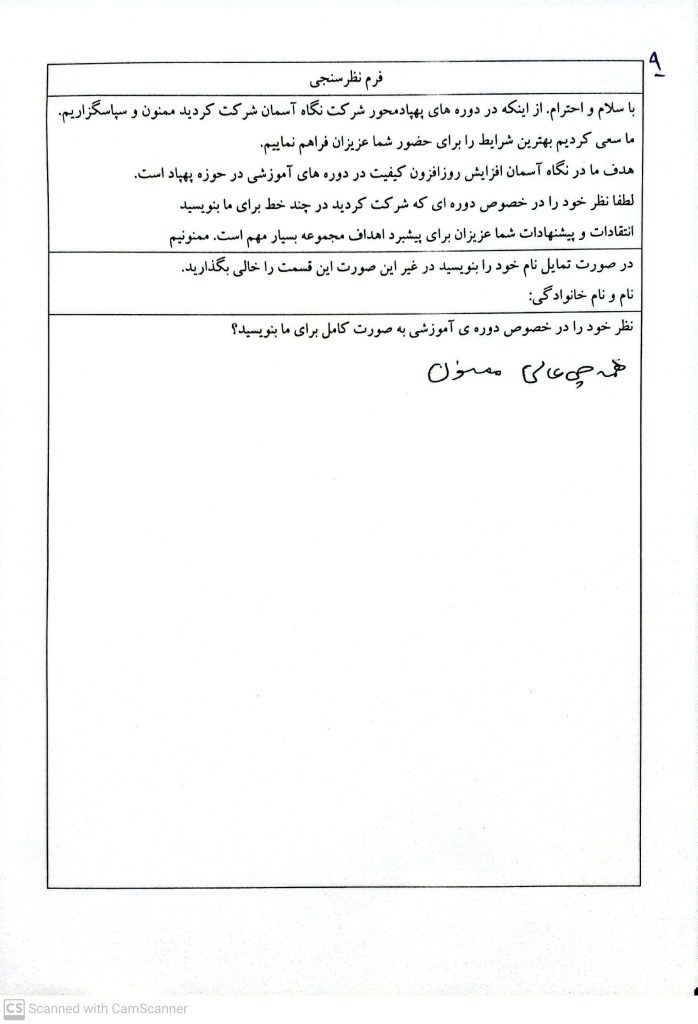 ۹
فرم نظرسنجی
با سلام و احترام. از اینکه در دوره های پهپادمحور شرکت نگاه آسمان شرکت کردید ممنون و سپاسگزاریم.
ما سعی کردیم بهترین شرایط را برای حضور شما عزیزان فراهم نماییم.
هدف ما در نگاه آسمان افزایش روزافزون کیفیت در دوره های آموزشی در حوزه پهپاد است.
لطفا نظر خود را در خصوص دوره ای که شرکت کردید در چند خط برای ما بنویسید
انتقادات و پیشنهادات شما عزیزان برای پیشبرد اهداف مجموعه بسیار مهم است. ممنونیم
در صورت تمایل نام خود را بنویسید در غیر این صورت این قسمت را خالی بگذارید.
نام و نام خانوادگی:
نظر خود را در خصوص دوره ی آموزشی به صورت کامل برای ما بنویسید؟
همه چی عالی ممنون
CS Scanned with CamScanner